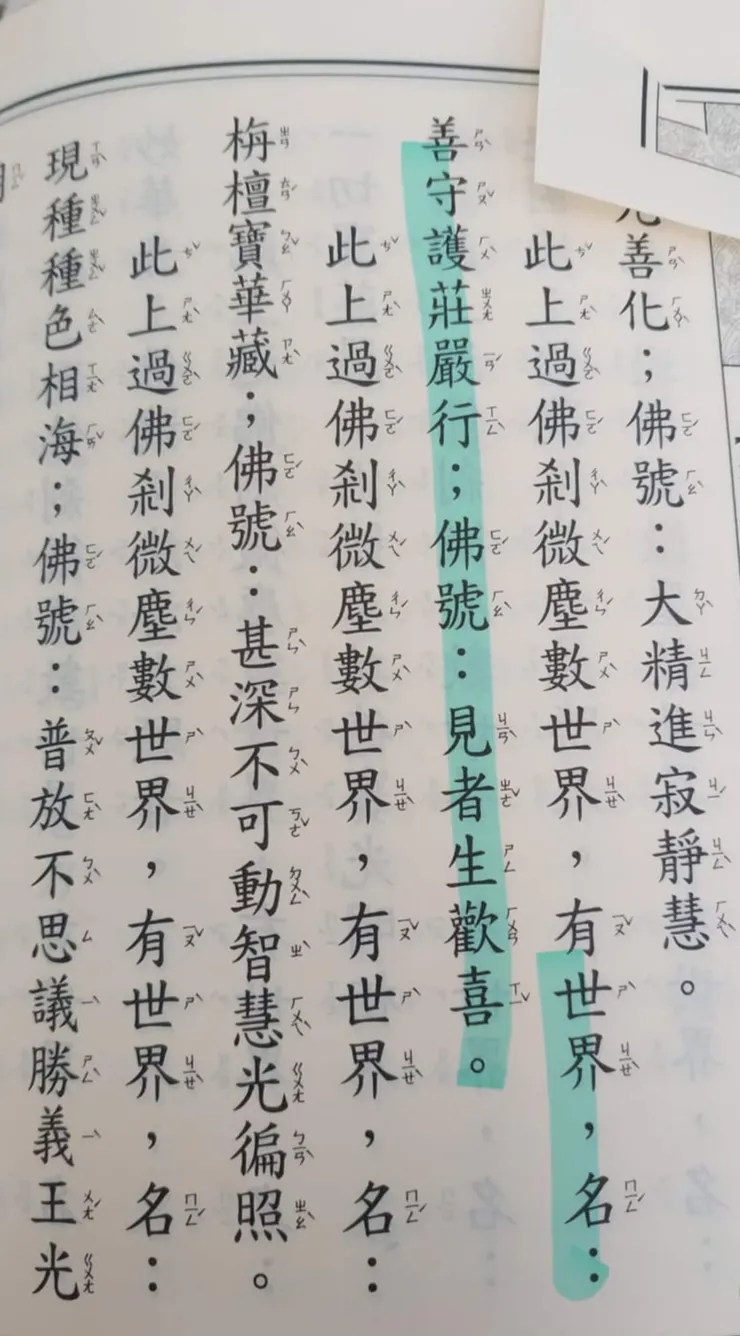 善化；佛號：大精進寂靜慧。
此上過佛剎微塵數世界，有世界，名：
善守護莊嚴行；佛號：見者生歡喜。
此上過佛剎微塵數世界，有世界，名：
栴檀寶華藏；佛號：甚深不可動智慧光徧照。
此上過佛剎微塵數世界，有世界，名：
現種種色相海；佛號：普放不思議勝義王光